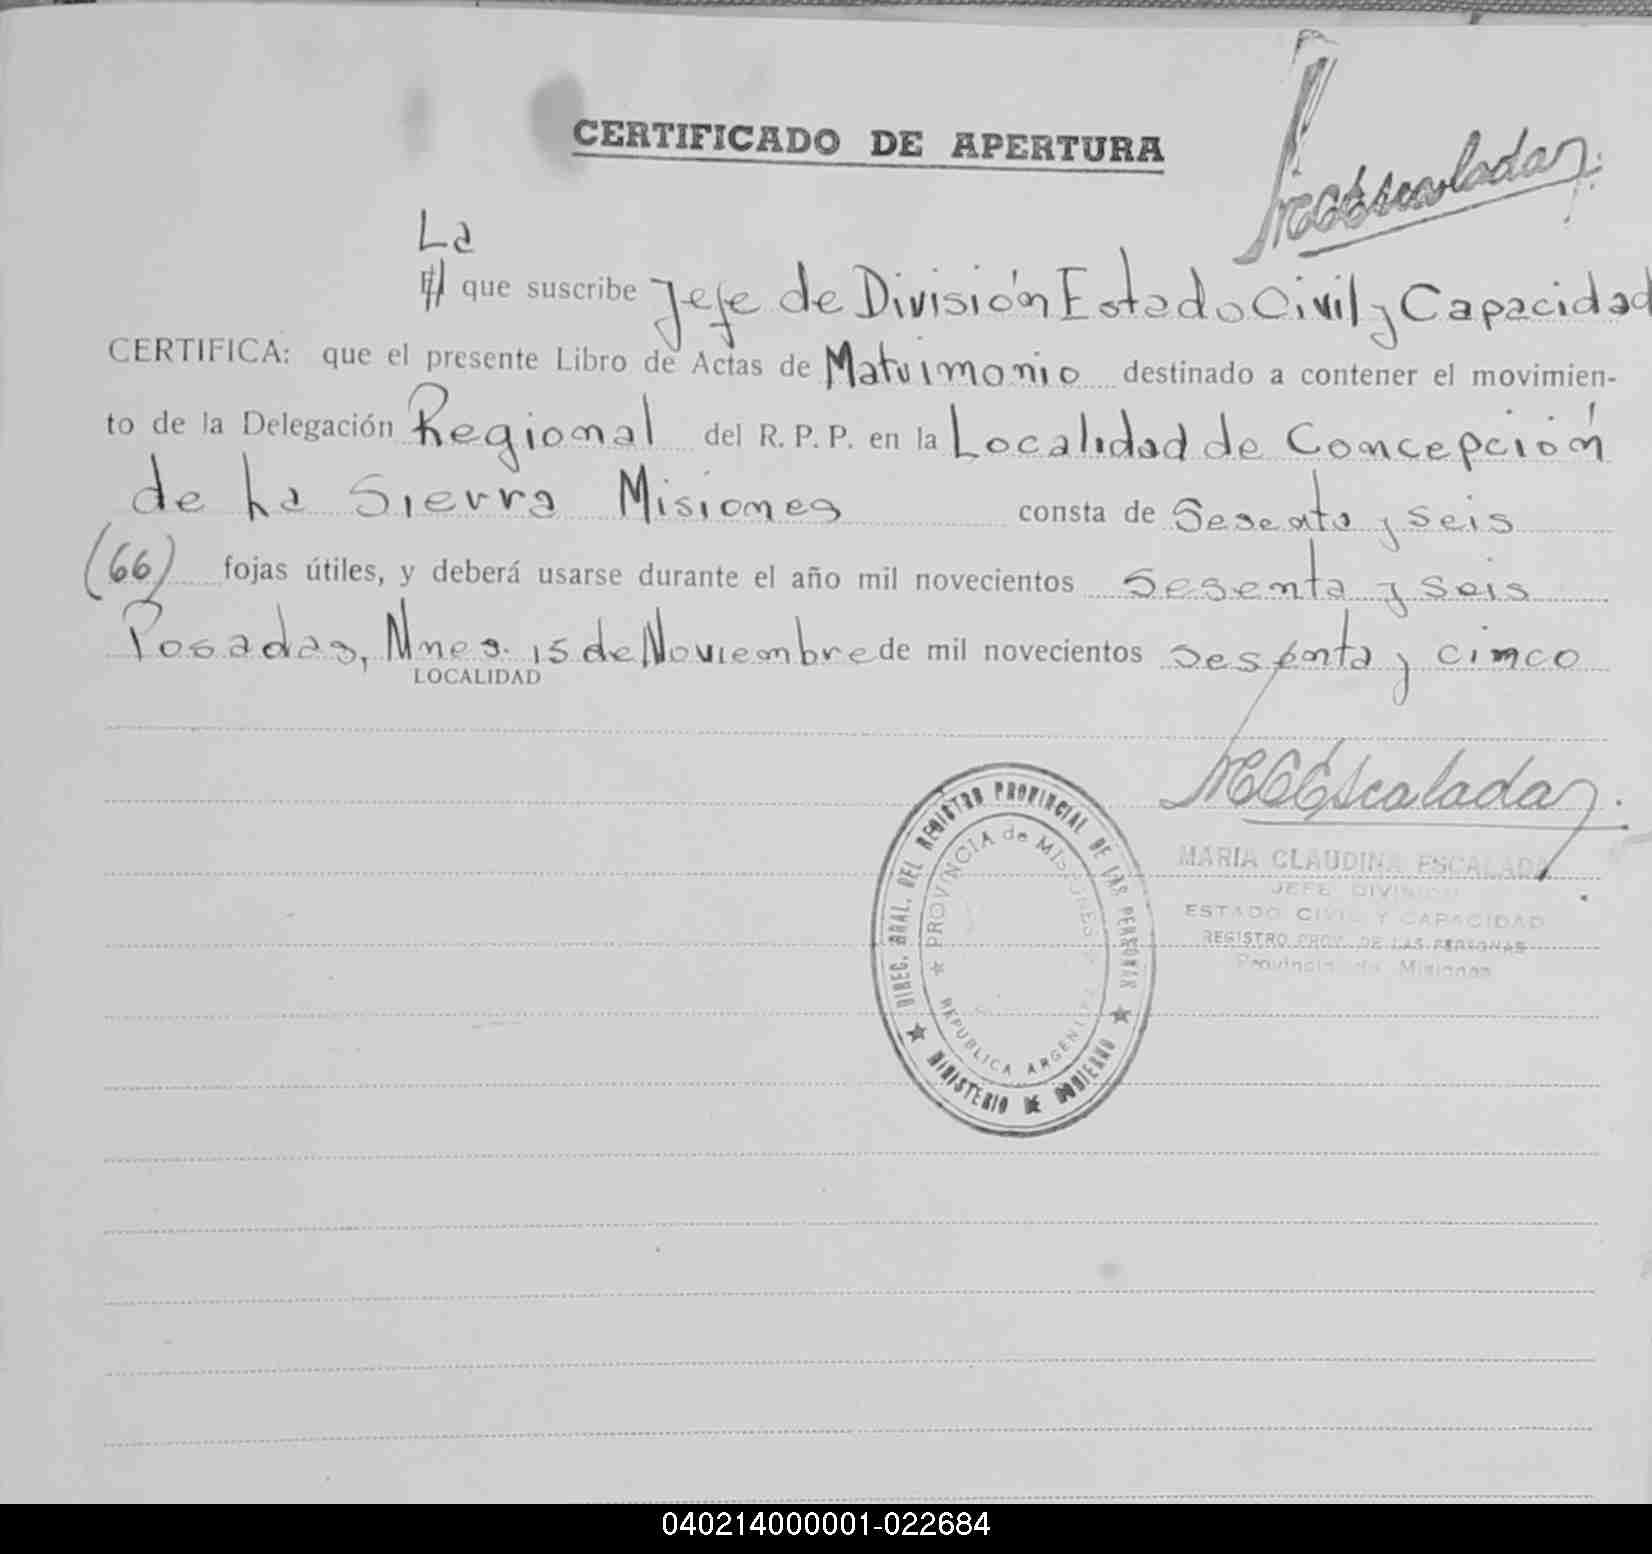 CERTIFICADO DE APERTURA
MCEscalada
La
El que suscribe Jefe de División Estado Civil y Capacidad
CERTIFICA: que el presente Libro de Actas de Matrimonio destinado a contener el movimien-
to de la Delegación Regional del R. P. P. en la Localidad de Concepción
de La Sierra Misiones consta de Sesenta y seis
(66) fojas útiles, y deberá usarse durante el año mil novecientos sesenta y seis
Posadas, Mnes. 15 de Noviembre de mil novecientos sesenta y cinco
LOCALIDAD
MCEscalada
MARIA CLAUDINA ESCALADA
JEFE DIVISION
ESTADO CIVIL Y CAPACIDAD
REGISTRO PROV. DE LAS PERSONAS
Provincia de Misiones
DIREC. GRAL. DEL REGISTRO PROVINCIAL DE LAS PERSONAS
PROVINCIA de MISIONES
REPUBLICA ARGENTINA
MINISTERIO DE GOBIERNO
040214000001-022684